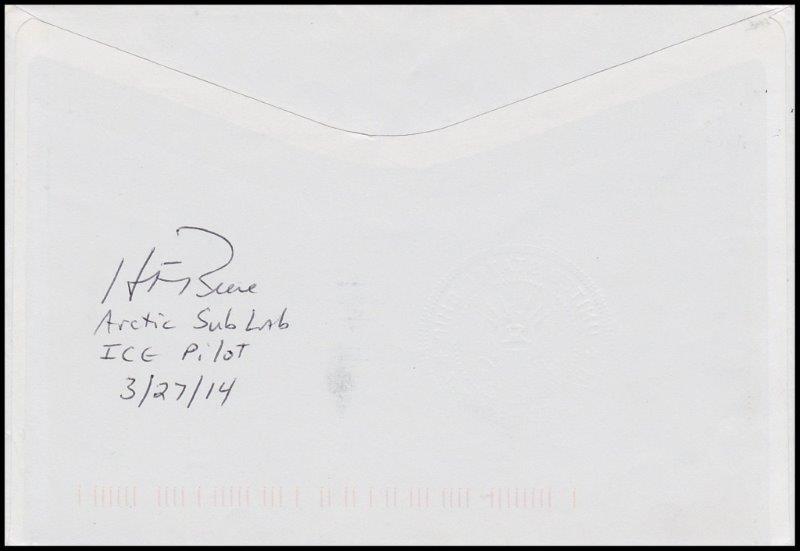 Arctic Sub Lab
ICE Pilot
3/27/14